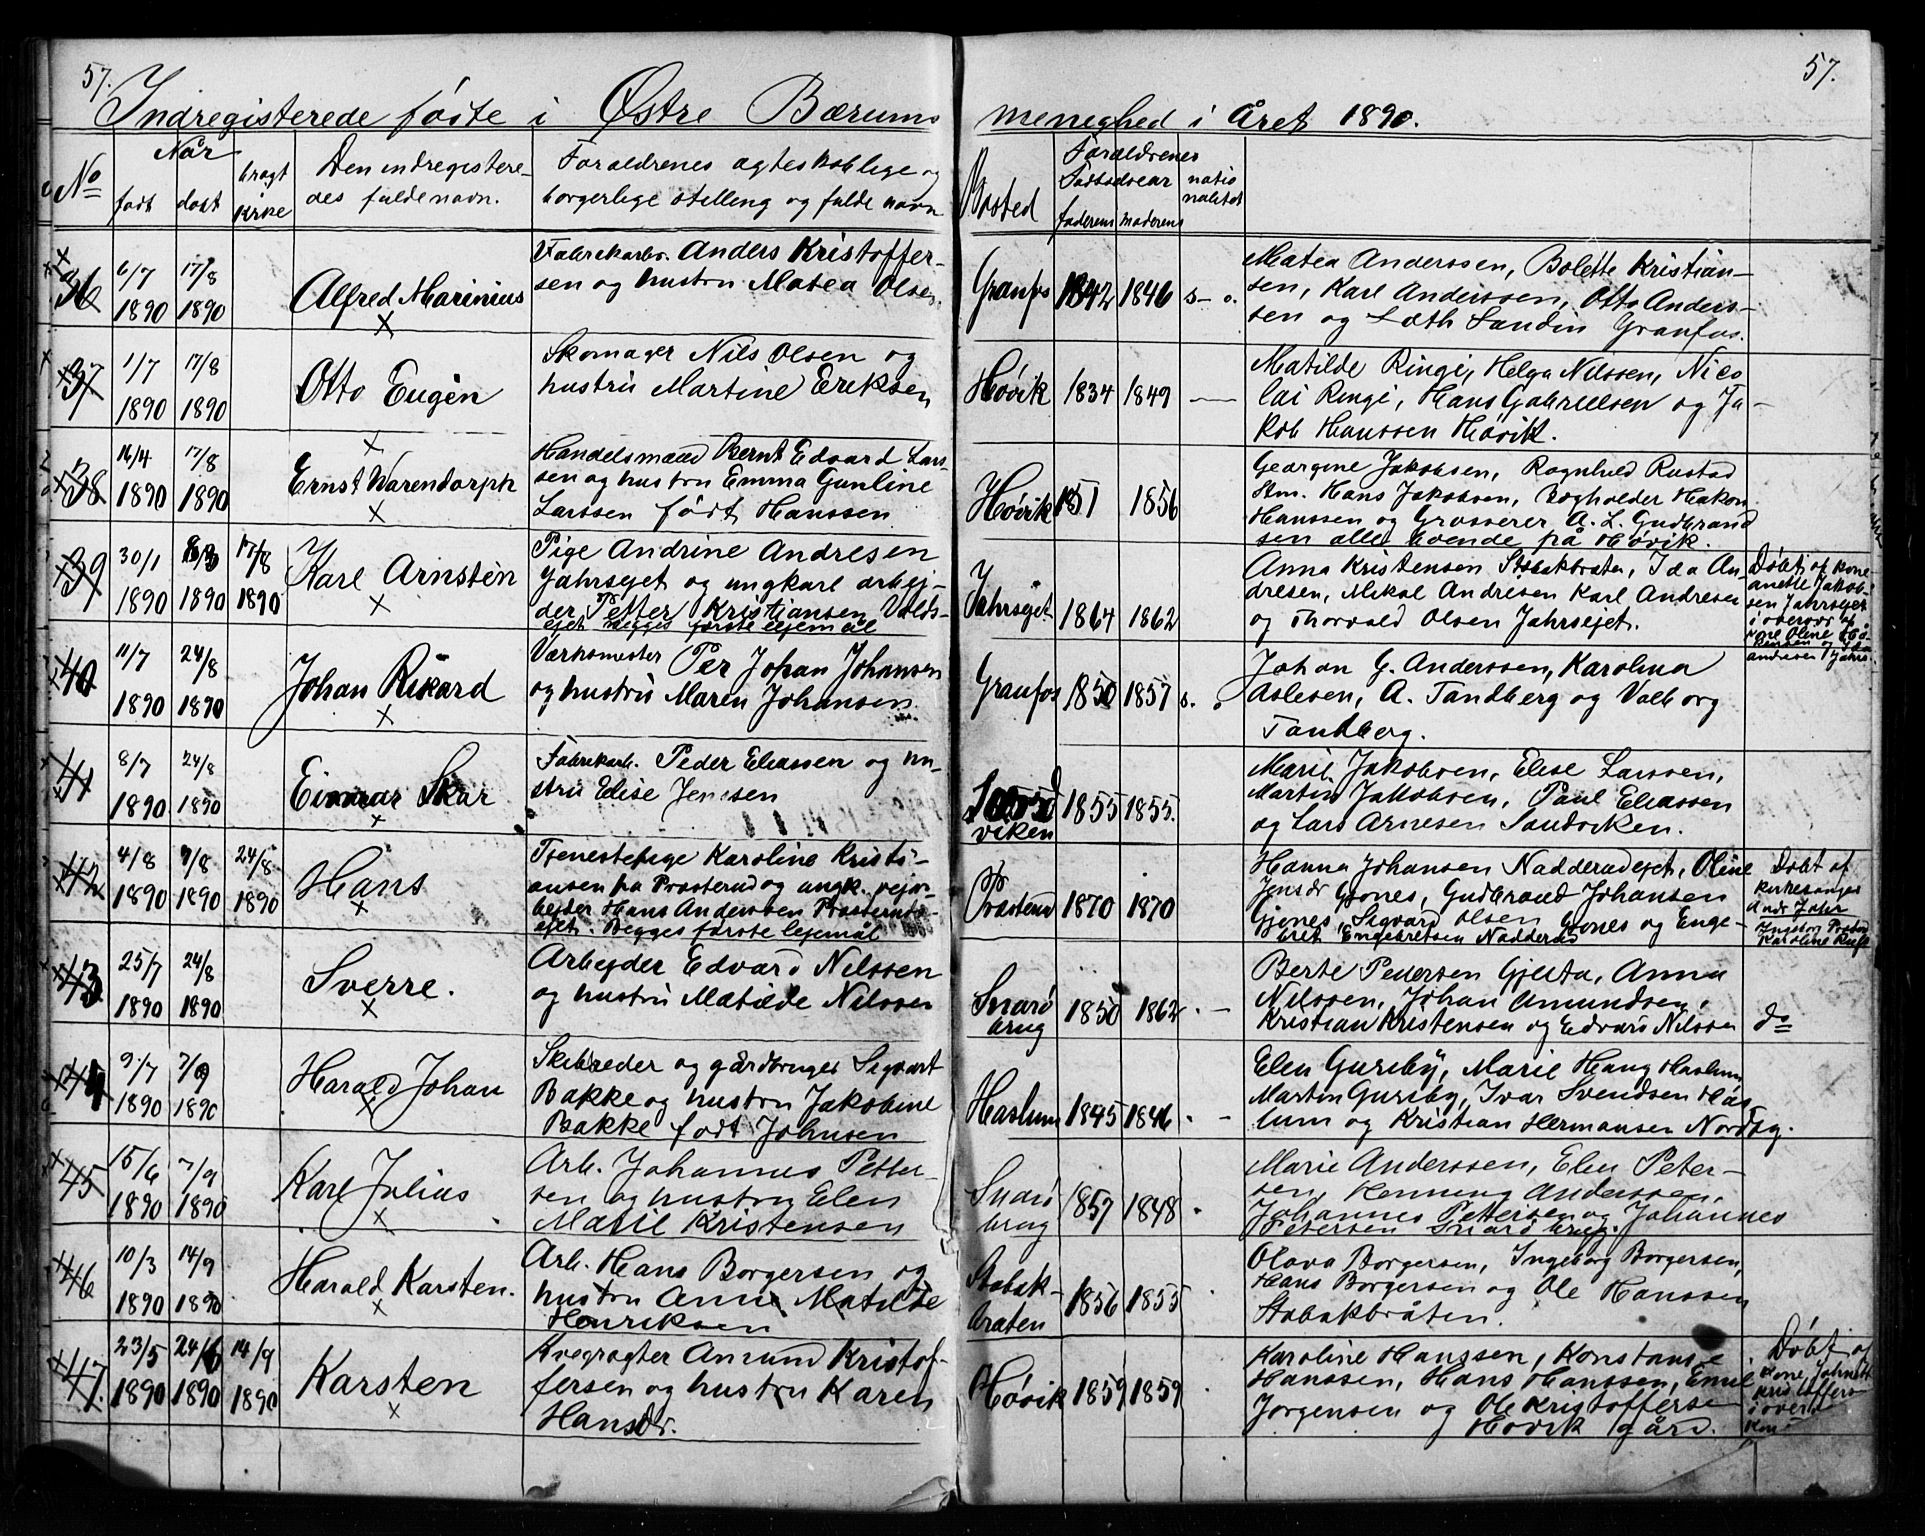 57.
57.
Indregisterede fødte i Østre Bærums menighed i året 1890.
No
Når
født
døbt
bragt i kirke
Den indregistere-
des fulde navn.
Forældrenes ægteskablige og
borgerlige stilling og fulde navn
Bosted
Forældrenes
Fødselsår
faderens moderens
natio
nalitet
36 6/7 1890 17/8 1890
Alfred Marinius
Fabrikarb. Anders Kristoffer-
sen og hustru Matea Olsen
Granfos 1842 1846 s- o.
Matea Anderssen, Bolette Kristian-
sen, Karl Anderssen, Otto Anders-
sen og Seth Sandin Granfos.
37 1/7 1890 17/8 1890
Otto Eugen
Skomager Nils Olsen og
hustru Martine Eriksen
Høvik 1834 1849
Matilde Ringi, Helga Nilssen, Nico
lai Ringi, Hans Gabrielsen og Ja-
kob Hanssen Høvik.
38 16/4 1890 17/8 1890
Ernst Warendorph
Handelsmand Bernt Edvard Lars-
sen og hustru Emma Gunline
Larssen født Hanssen
Høvik 1851 1856
Georgine Jakobsen, Ragnhild Rustad
Stm. Hans Jakobsen, Bogholder Hakon
Hanssen og Grosserer A. L. Gudbrand
sen alle boende på Høvik.
39 30/1 1890 1890 17/8 1890
Karl Arnsten
Pige Andrine Andresen
Jahrsejet og ungkarl arbej-
der Petter Kristiansen Volds-
ejet begges første lejemål
Jahrsejet 1864 1862
Anna Kristensen Stabakbråten, Ida An-
dresen, Mikal Andresen Karl Andresen
og Thorvald Olsen Jahrsejet.
Døbt af kone
anette Jakob-
sen Jahrsejet
i overvær af
kone Oline
og Ida
andresen Jahrs.
40 11/7 1890 24/8 1890
Johan Rikard
Værksmester Per Johan Johansen
og hustru Maren Johansen
Granfos 1850 1857 s. o
Johan G. Anderssen, Karolina
Aslesen, A. Tandberg og Valborg
Tandberg.
41 8/7 1890 24/8 1890
Einar Skar
Fabrikarb. Peder Eliassen og hu-
stru Elise Jensen
Sand
viken 1855 1855.
Marie Jakobsen, Elise Larssen,
Martin Jakobsen, Paul Eliassen
og Lars Arnesen Sandviken.
42 4/8 1890 9/8 1890 24/8 1890
Hans
Tjenestepige Karoline Kristi-
ansen fra Presterud og ungk. vejar-
bejder Hans Anderssen Presteruds-
ejet. Begges første lejemål
Presterud 1870 1870
Hanna Johansen Nadderudejet, Oline
Jensdr Gjønes, Gudbrand Johansen
Gjønes, Sigvard Olsen Gjønes og Enge-
bret Engebretsen Nadderud
Døbt af
kirkesanger
43 25/7 1890 24/8 1890
Sverre.
Arbejder Edvard Nilssen
og hustru Matilde Nilssen
Snarø
brug 1850 1862
Berte Pedersen Gjetta, Anna
Nilssen, Johan Amundsen,
Kristian Kristensen og Edvard Nilssen
do
44 9/7 1890 7/9 1890
Harald Johan
Skibsreder og gårdbruger Sigvart
Bakke og hustru Jakobine
Bakke født Johnsen
Haslum 1845 1846
Elen Gursby, Marie Haug Haslum
Martin Gursby, Ivar Svendsen Has
lum og Kristian Hermansen Nordby.
45 15/6 1890 7/9 1890
Karl Julius
Arb. Johannes Petter-
sen og hustru Elen
Marie Kristensen
Snarø
brug 1857 1848
Marie Anderssen, Elen Peter-
sen, Henning Anderssen,
Johannes Pettersen og Johannes
Petersen Snarø brug.
46 10/3 1890 14/9 1890
Harald Karsten.
Arb. Hans Borgersen og
hustru Anne Matilde
Henriksen
Stabak-
bråten 1856 1855
Olava Borgersen, Ingeborg Borgersen,
Hans Borgersen og Ole Hanssen
Stabakbråten.
47. 23/5 1890 24/6 1890 14/9 1890
Karsten
Kvegrøgter Amund Kristof-
fersen og hustru Karen
Hansdr.
Høvik 1859 1859
Karoline Hanssen, Konstanse
Hanssen, Hans Hanssen, Emil
Jørgensen og Ole Kristoffersen
Høvik gård.
Døbt af
kone
Kristoffers